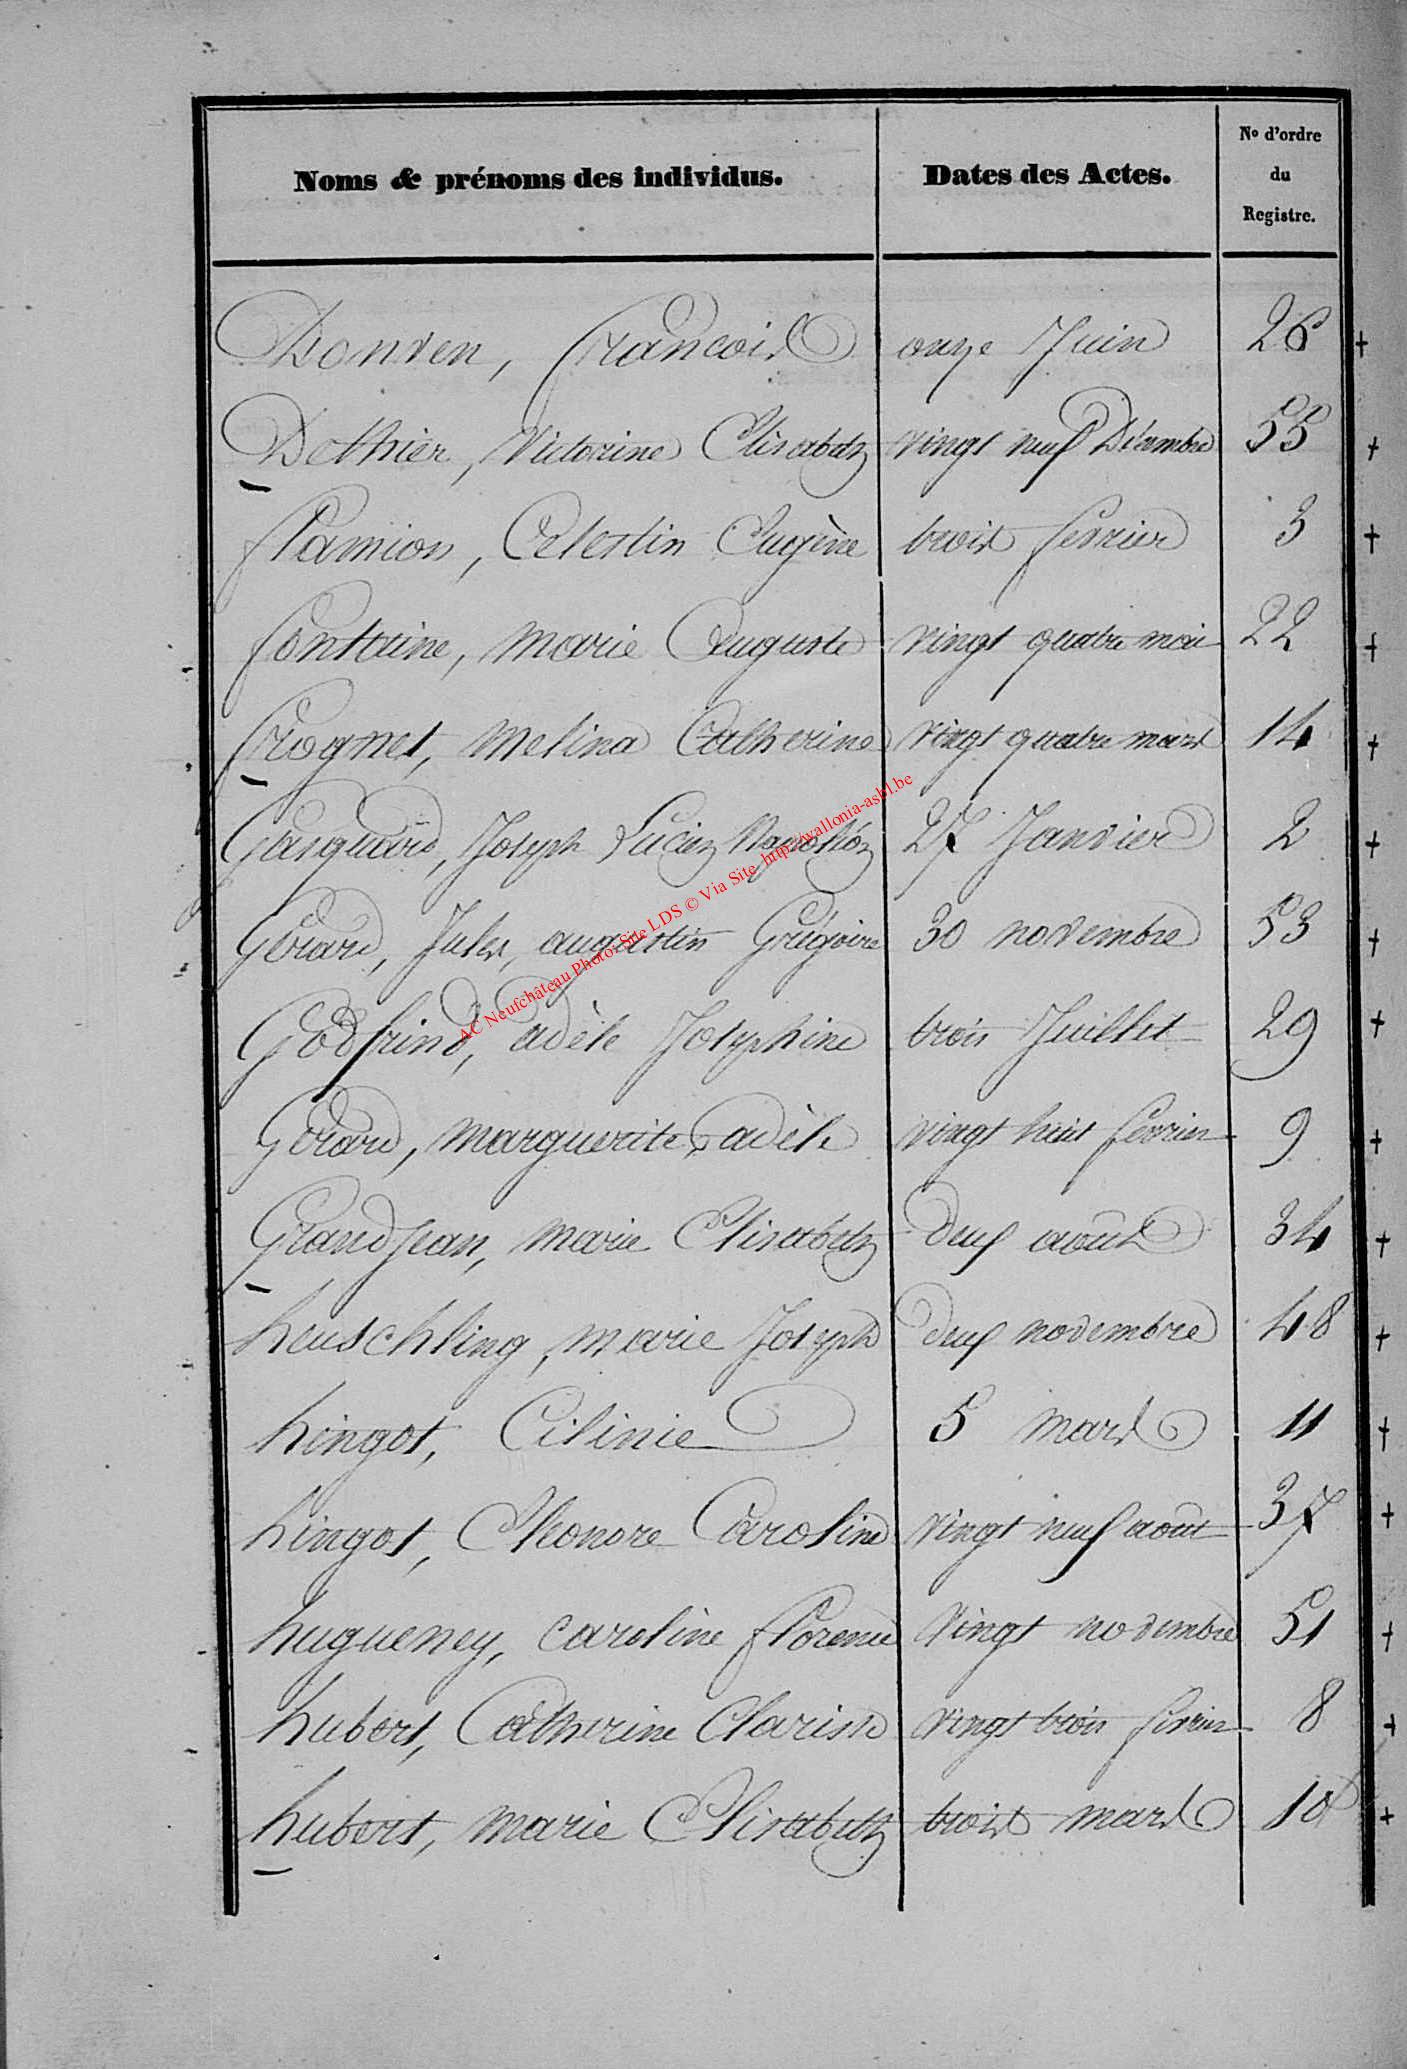 Noms & prénoms des individus. Dates des Actes. No d'ordre du Registre.
Donven, François onze Juin 26 +
Dethier, Victorine Elisabeth vingt neuf Décembre 55 +
flamion, Celestin Eugène trois fevrier 3 +
fontaine, marie Auguste vingt quatre mai 22 +
frognet, Melina Catherine vingt quatre mars 14 +
Gasquard, Joseph Lucien Napoléon 27 Janvier 2 +
Gérard, Jules, augustin Grégoire 30 novembre 53 +
Godfrind, adèle Joséphine trois Juillet 29 +
Gérard, Marguerite adèle vingt huit fevrier 9 +
Grandjean, marie Elisabeth deux août 34 +
heuschling, marie Joseph deux novembre 48 +
hingot, Cilinie 5 mars 11 +
hingot, Eléonore Caroline vingt neuf août 37 +
hugueney, caroline florence Vingt novembre 51 +
hubert, Catherine Clarisse vingt trois fevrier 8 +
hubert, marie Elisabeth trois mars 10 +
AC Neufchâteau Photo: Site LDS © Via Site http://wallonia-asbl.be